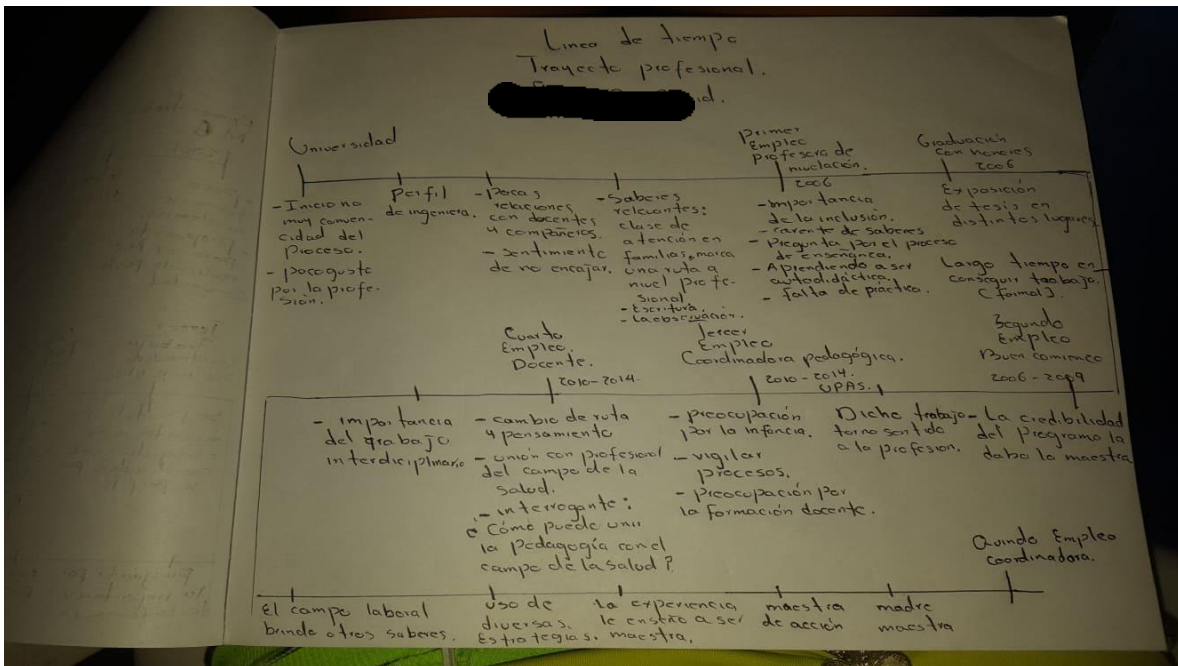 Linea de tiempo
Trayecto profesional.
id.
Universidad
- Inicio no
muy conven-
cidad del
Proceso.
- poco gusto
por la profe-
sión.
Perfil
de ingeniera.
- Pocas
relaciones
con docentes
y compañeros.
- Sentimiento
de no encajar.
- Saberes
relevantes:
clase de
atención en
familias, marca
una ruta a
nivel profe-
sional
- Escritura.
- La observación.
Primer
Empleo
profesora de
nivelación.
2006
- Importancia
de la inclusión.
- carente de saberes
- Pregunta por el proceso
de enseñanca.
- Aprendiendo a ser
autodidáctica.
- falta de práctica.
Graduación
con honores
2006
Exposición
de tesis en
distintos lugares
Largo tiempo en
conseguir trabajo.
(formal).
Segundo
Empleo
Buen comienzo
2006 - 2009
- La credibilidad
del programa la
daba la maestra
Dicho trabajo
torno sentido
a la profesion.
Tercer
Empleo
Coordinadora pedagógica.
2010 - 2014.
UPAS.
- preocupación
por la infancia.
- vigilar
procesos.
- preocupación por
la formación docente.
Cuarto
Empleo.
Docente.
2010-2014.
- cambio de ruta
y pensamiento
- unión con profesional
del campo de la
salud.
- interrogante:
¿Cómo puede unir
la Pedagogía con el
campo de la salud?
- importancia
del trabajo
interdiciplinario
Quindo Empleo
coordinadora.
madre
maestra
maestra
de acción
La experiencia
le enseño a ser
maestra.
Uso de
diversas.
Estrategias.
El campo laboral
brinda otros saberes.